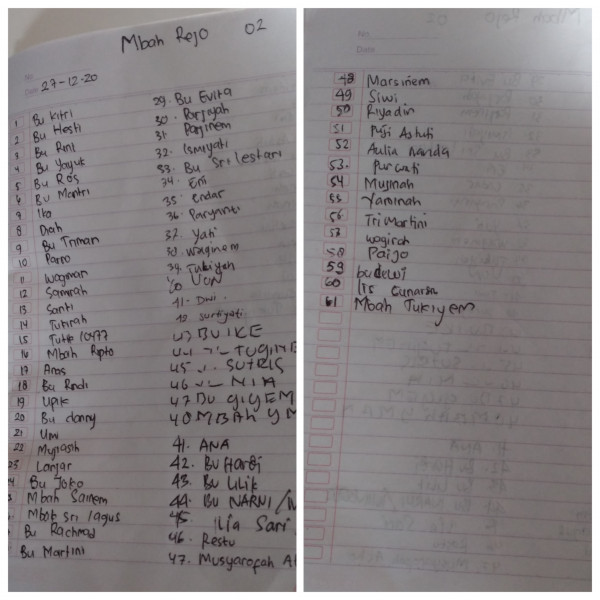 Mbah Rejo 02
No
Date 27-12-20
1 Bu Kitri
2 Bu Hesti
3 Bu Rini
4 Bu Yayuk
5 Bu Ros
6 Bu Mantri
7 Iko
8 Diah
9 Bu Triman
10 Parno
11 Wagman
12 Samirah
13 Santi
14 Tukirah
15
16 Mbah Ripto
17 Anas
18 Bu Rindi
19 Upik
20 Bu danny
21 Umi
22 Mujiasih
23 Lanjar
Bu Joko
Mbah Sainem
Mbok Sri /agus
Bu Rachmad
Bu Martini
29. Bu Evita
30. Parjiyah
31. Paginem
32. Ismiyati
33. Bu Sri lestari
34. Eni
35. Endar
36. Paryanti
37. Yati
38. Waginem
39. Tukiyah
40 Uun
41. Dwi.
42. Surtiyati
43 BU IKE
TUGIN
45 SUTRIS
46 NIA
47 BU GIYEM
48 MBAH
41. ANA
42. Bu Hardi
43. Bu Lilik
44. Bu NARNI /
45 Ilia Sari
46. Restu
47. Musyarofah
No
Date
48 Marsinem
49 Siwi
50 Riyadin
51 Puji Astuti
52 Aulia nanda
53. Purwati
54 Musinah
55 Yaminah
56 Tri Martini
57 wagirah
58 Paijo
59 bu dewi
60 Iis Gunarsa
61 Mbah Tukiyem